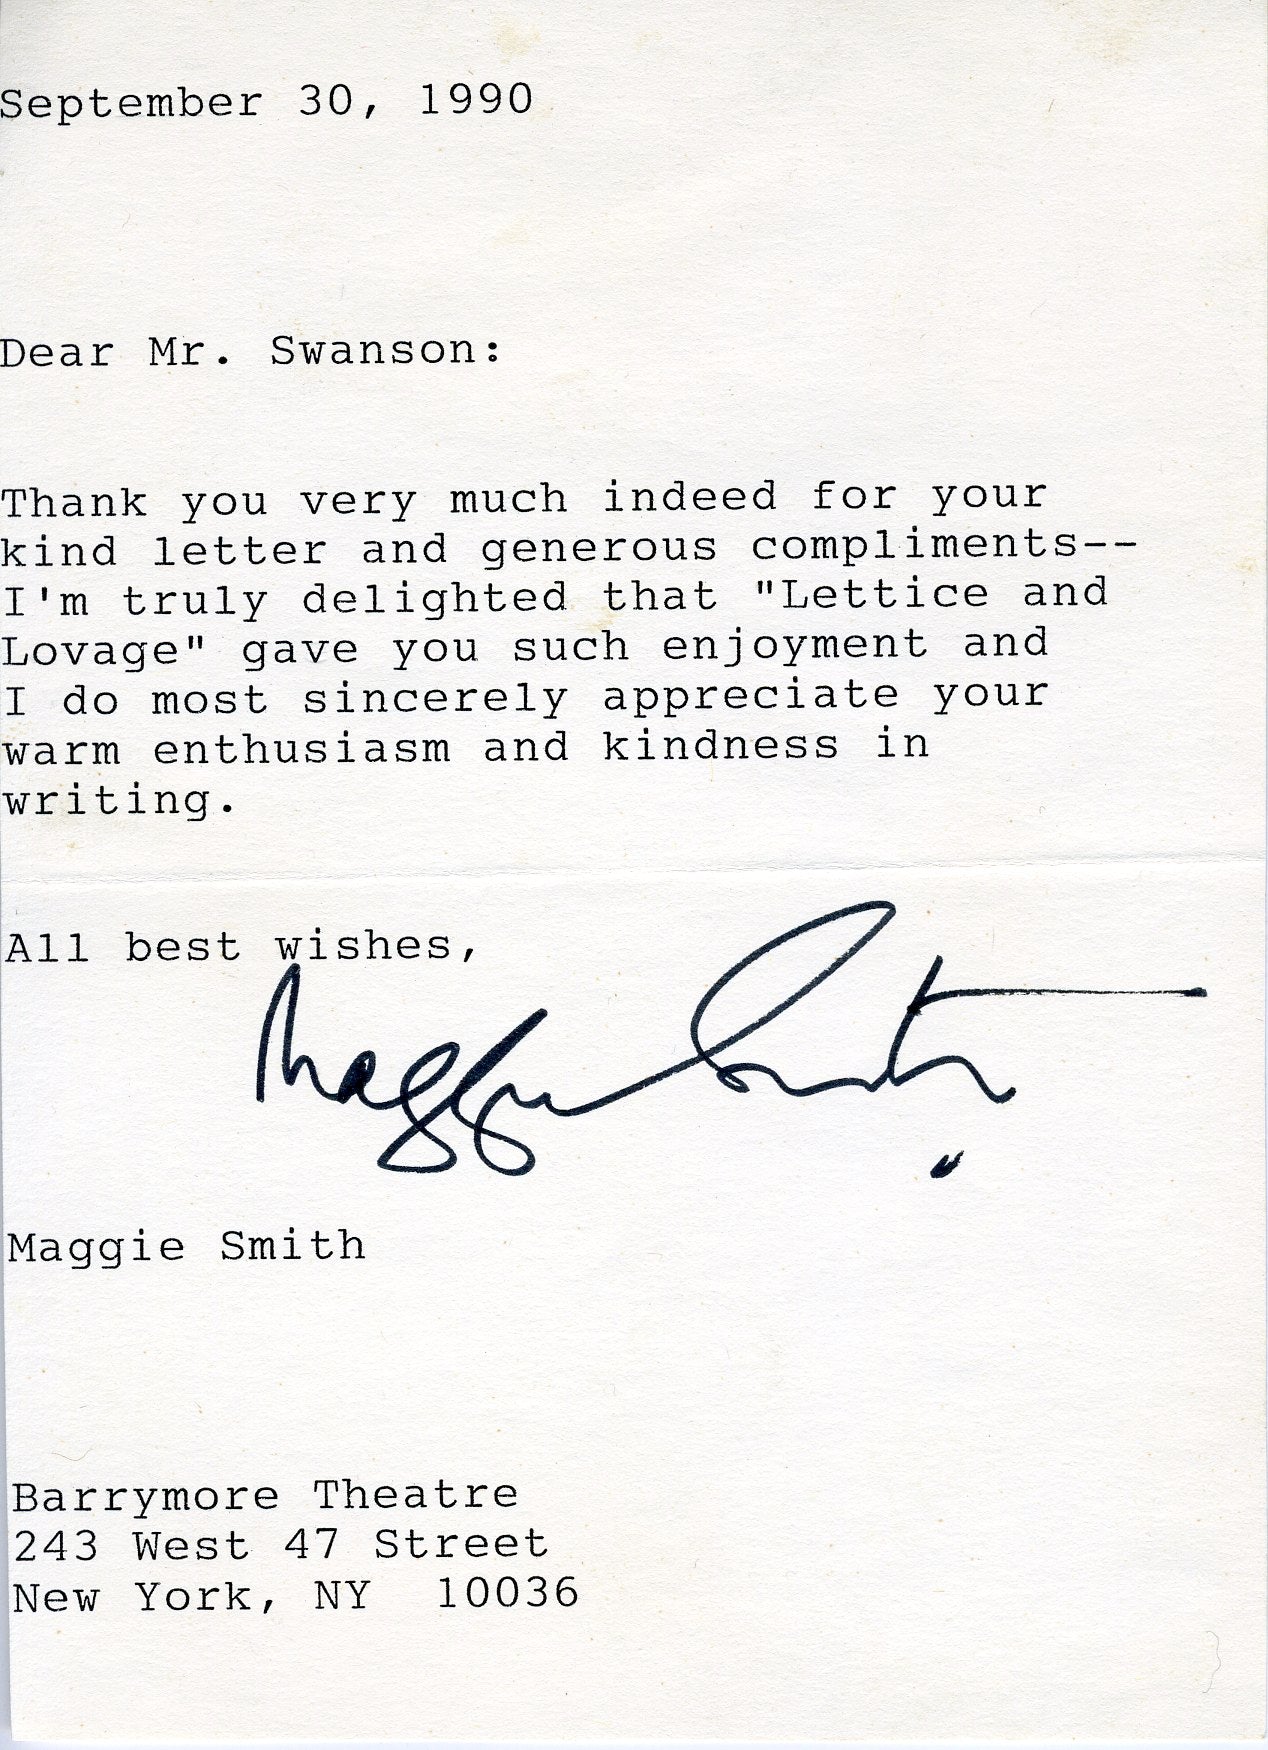 September 30, 1990
Dear Mr. Swanson:
Thank you very much indeed for your
kind letter and generous compliments--
I'm truly delighted that "Lettice and
Lovage" gave you such enjoyment and
I do most sincerely appreciate your
warm enthusiasm and kindness in
writing.
All best wishes,
Maggie Smith
Maggie Smith
Barrymore Theatre
243 West 47 Street
New York, NY  10036